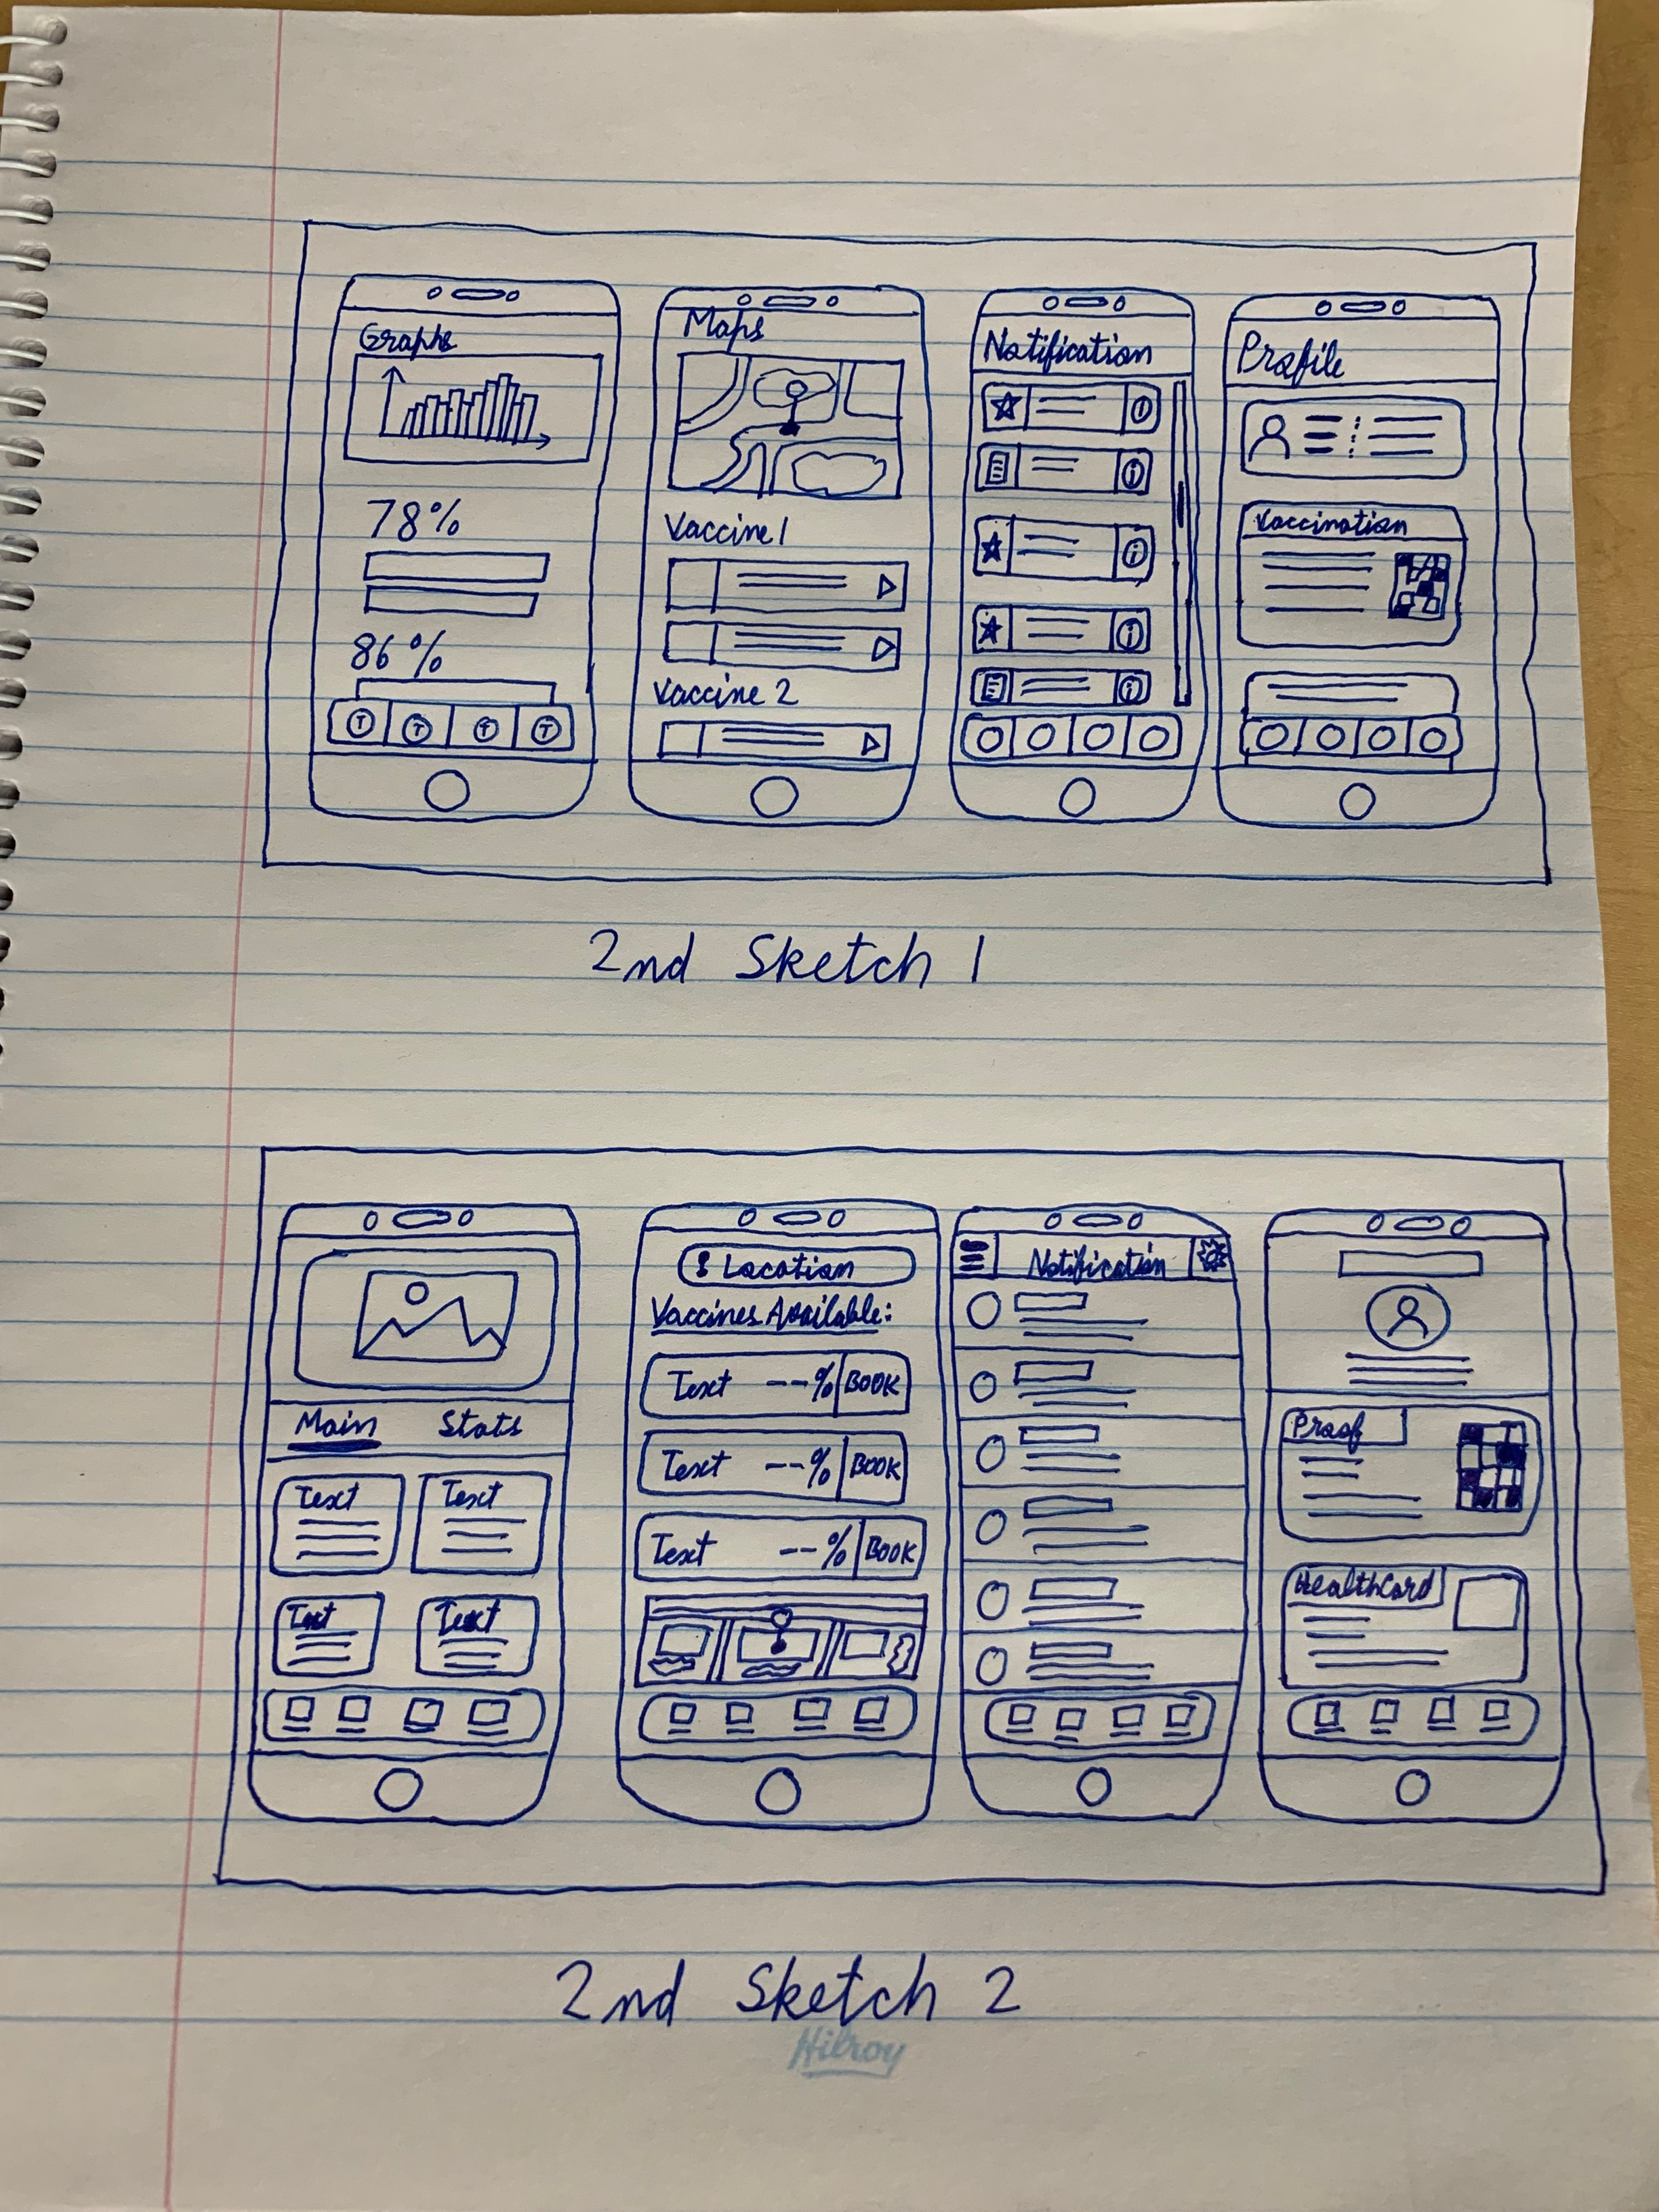 Graphs
78%
86%
T T T T
Maps
Vaccine 1
Vaccine 2
Notification
i
i
i
i
i
Profile
Vaccination
2nd Sketch 1
Main Stats
Text Text
Text Text
Location
Vaccines Available:
Text --% BOOK
Text --% BOOK
Text --% BOOK
Notification
Proof
HealthCard
2nd Sketch 2
Hilroy